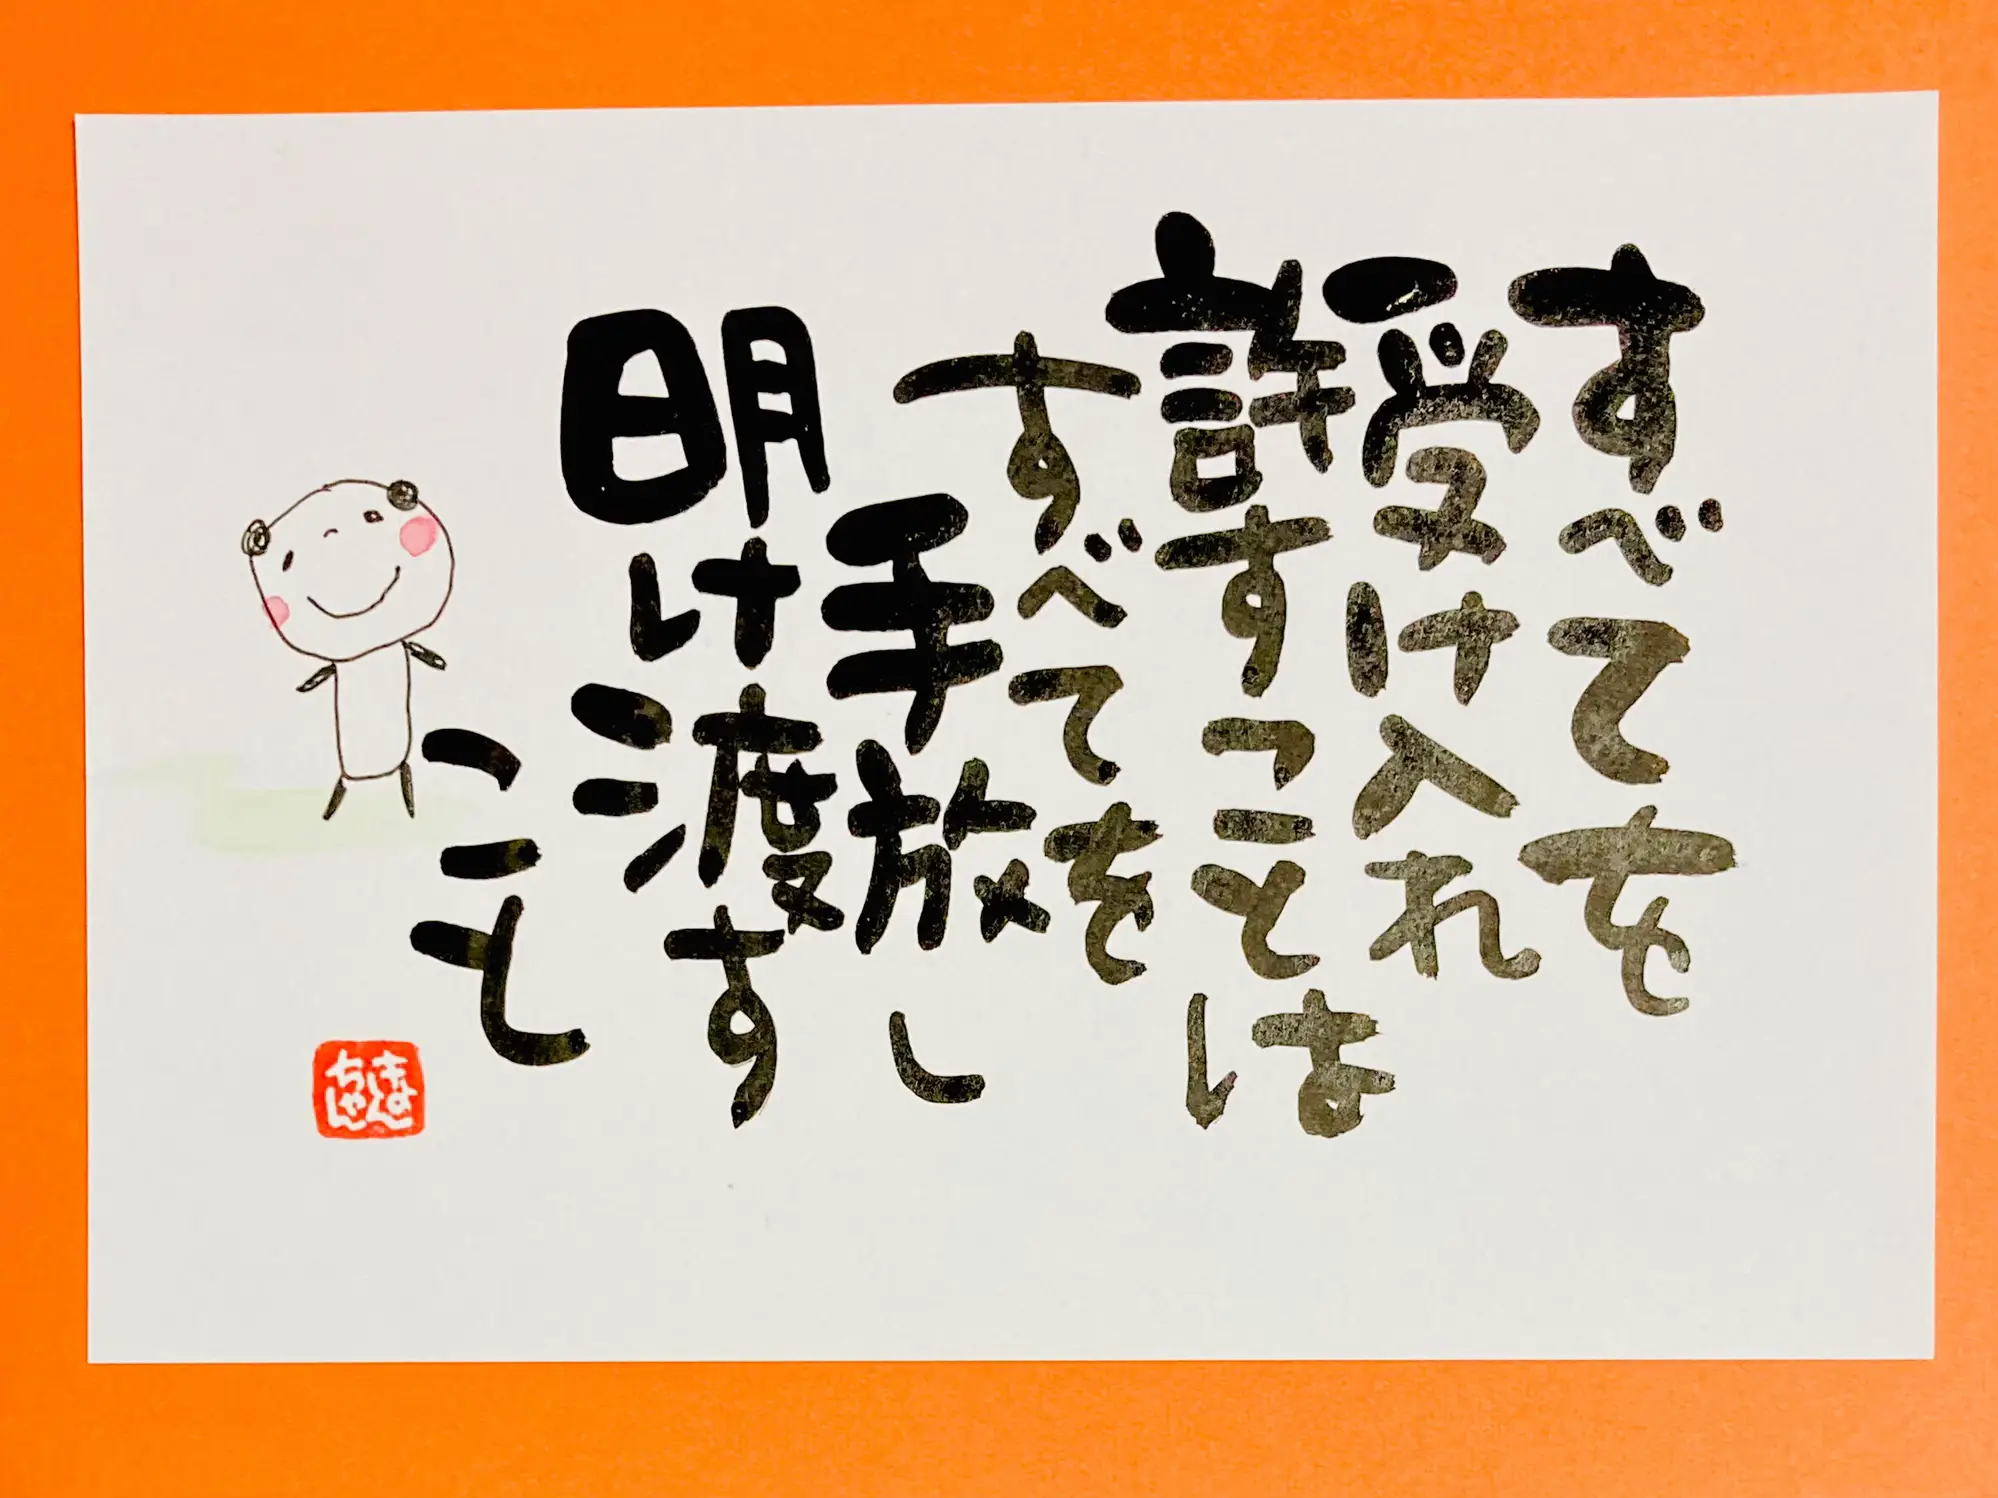 すべてを
受け入れ
許すことは
すべてを
手放し
明け渡す
こと
ちゃん